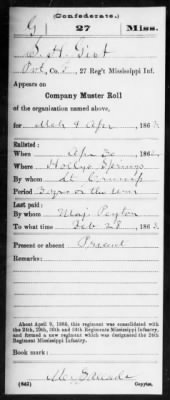 (Confederate.)
G 27 Miss.
S. H. Gist
Pvt, Co. , 27 Reg't Mississippi Inf.
Appears on
Company Muster Roll
of the organization named above,
for Mch & Apr, 186
Enlisted:
When Apr 30, 186
Where Holly Springs
By whom Lt
Period 3 yrs or the war
Last paid:
By whom Maj. Peyton
To what time Feb 28, 186
Present or absent Present
Remarks:
About April 9, 1865, this regiment was consolidated with
the 24th, 29th, 30th and 34th Regiments Mississippi Infantry,
and formed a new regiment which was designated the 24th
Regiment Mississippi Infantry.
Book mark:
(642) Copyist.